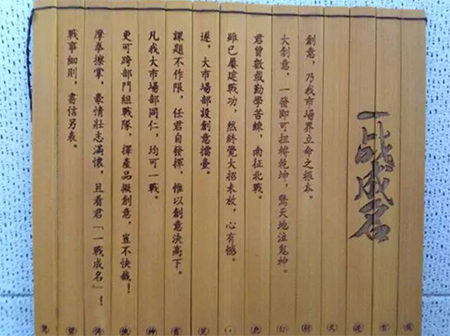 一战成名
創意，乃我市場界立命之根本。
大創意，一發即可扭轉乾坤，驚天地泣鬼神。
君曾數歲勤學苦練，南征北戰。
雖已屢建戰功，然終覺大招未放，心有憾。
遂，大市場部設創意擂臺。
課題不作限，任君自發揮，惟以創意決高下。
凡我大市場部同仁，均可一戰。
更可跨部門組戰隊，擇產品擬創意，豈不快哉！
摩拳擦掌，豪情壯志滿懷，且看君「一戰成名」！
戰事細則，書信另表。